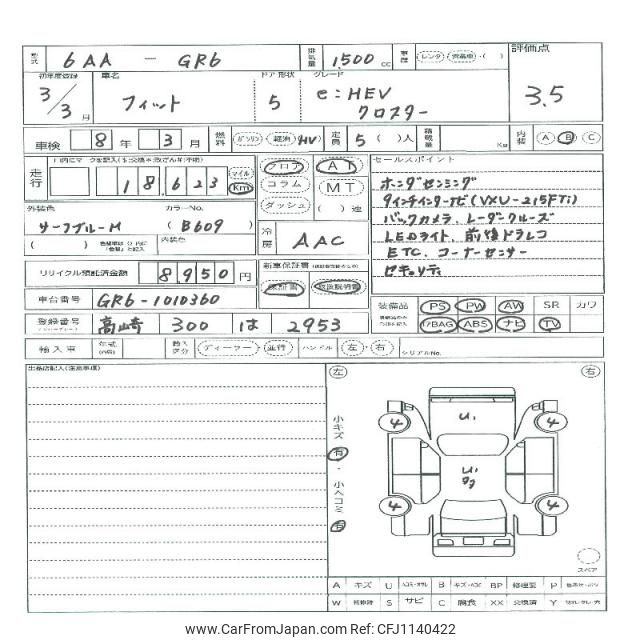 型式 6AA - GR6 排気量 1500 cc 車歴 レンタ・営業車・( ) 評価点
初年度登録 車名 ドア形状 グレード
3/3月 フィット 5 e:HEV クロスター 3.5
車検 8年 3月 燃料 ガソリン・軽油・HV 定員 5( )人 積載量 Kg 内装 A B C
走行 18,623 マイル Km フロア AT セールスポイント
コラム MT ホンダセンシング
ダッシュ ( )速 9インチインターナビ(VXU-215FTi)
外装色 カラーNo. バックカメラ、レーダークルーズ
サーフブルーM (B609) 冷房 AAC LEDライト、前後ドラレコ
( ) 内装色 ETC、コーナーセンサー
リサイクル預託済金額 8,950円 新車保証書 セキュリティ
保証書 取扱説明書
車台番号 GR6-1010360 装備品 PS PW AW SR カワ
登録番号 高崎 300 は 2953 エアBAG ABS ナビ TV
輸入車 年式 輸入区分 ディーラー・並行 ハンドル 左・右 シリアルNo.
出品店記入(注意事項) 左 右
小キズ 有・小ヘコミ 有
4 U1 4
U1
4 4
スペア
A キズ U B キズ・ヘコミ BP 修理歴 P
W S サビ C 腐食 XX 交換済 Y
www.CarFromJapan.com - CFJ1140422